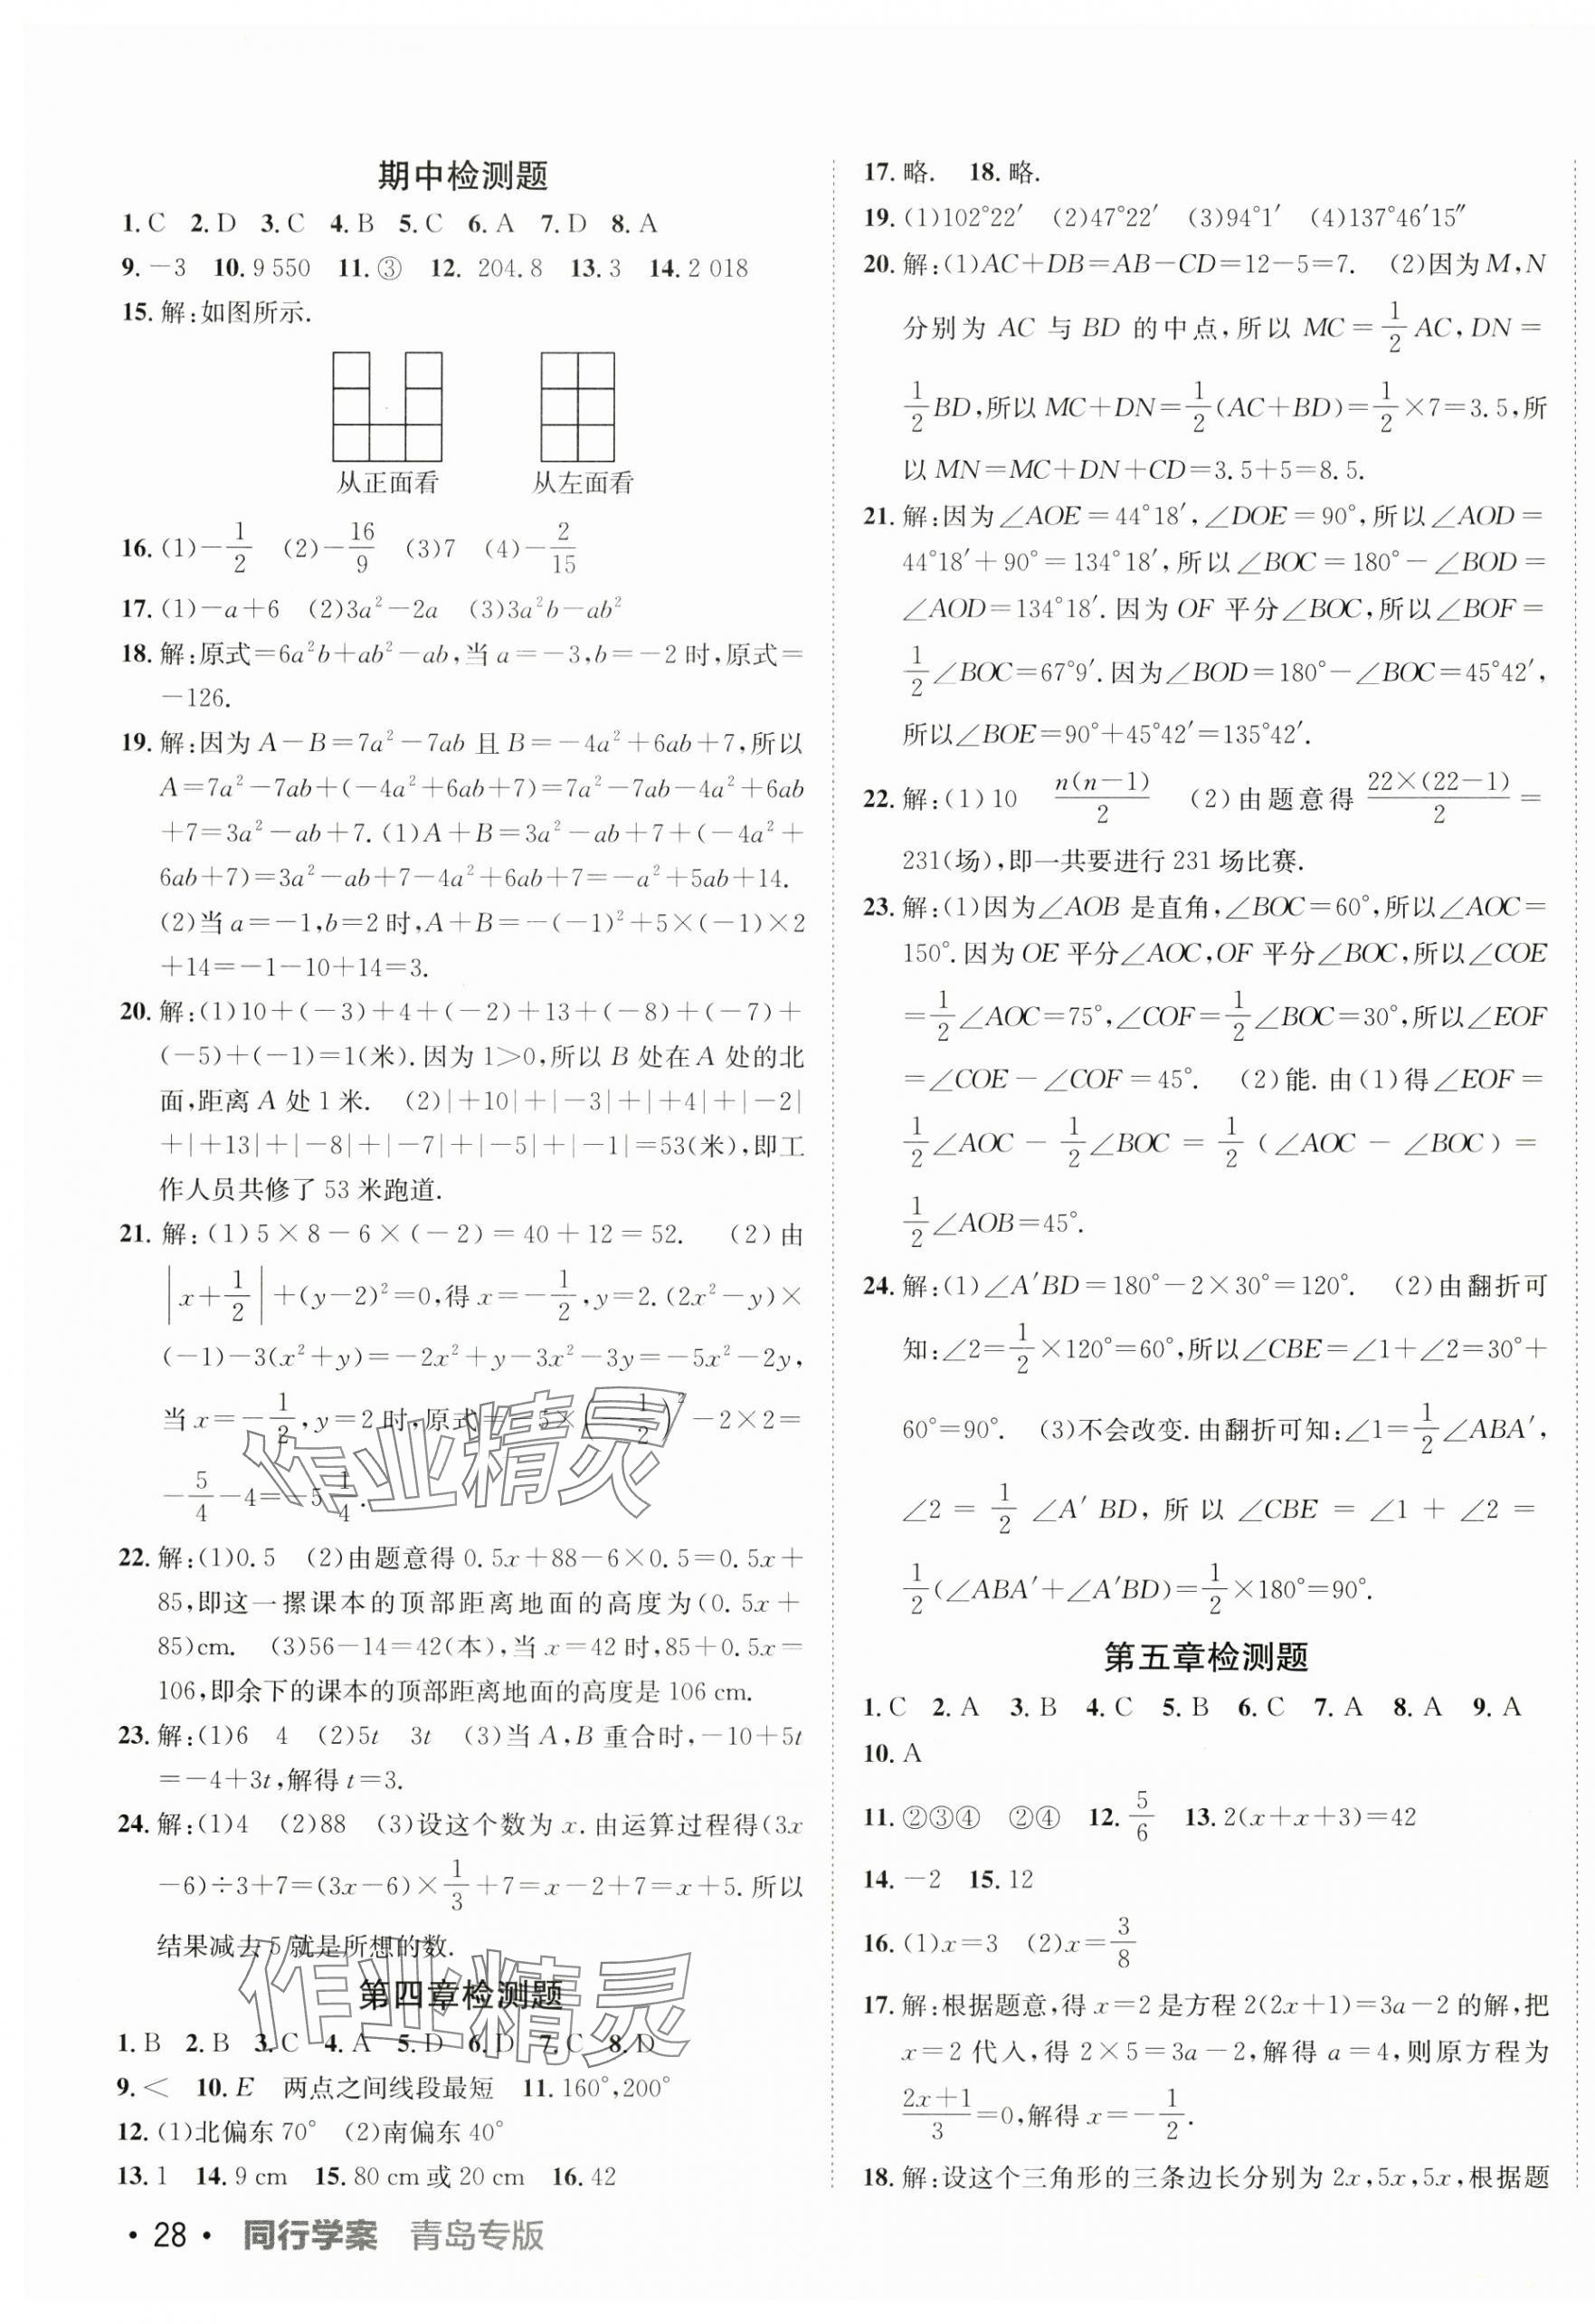 期中检测题
1. C 2. D 3. C 4. B 5. C 6. A 7. D 8. A
9. －3 10. 9 550 11. ③ 12. 204.8 13. 3 14. 2 018
15. 解:如图所示.
从正面看 从左面看
16. (1)－1/2 (2)－16/9 (3)7 (4)－2/15
17. (1)－a＋6 (2)3a²－2a (3)3a²b－ab²
18. 解:原式＝6a²b＋ab²－ab,当 a＝－3,b＝－2 时,原式＝
－126.
19. 解:因为 A－B＝7a²－7ab 且 B＝－4a²＋6ab＋7,所以
A＝7a²－7ab＋(－4a²＋6ab＋7)＝7a²－7ab－4a²＋6ab
＋7＝3a²－ab＋7. (1)A＋B＝3a²－ab＋7＋(－4a²＋
6ab＋7)＝3a²－ab＋7－4a²＋6ab＋7＝－a²＋5ab＋14.
(2)当 a＝－1,b＝2 时,A＋B＝－(－1)²＋5×(－1)×2
＋14＝－1－10＋14＝3.
20. 解:(1)10＋(－3)＋4＋(－2)＋13＋(－8)＋(－7)＋
(－5)＋(－1)＝1(米). 因为 1>0,所以 B 处在 A 处的北
面,距离 A 处 1 米. (2)|＋10|＋|－3|＋|＋4|＋|－2|
＋|＋13|＋|－8|＋|－7|＋|－5|＋|－1|＝53(米),即工
作人员共修了 53 米跑道.
21. 解:(1)5×8－6×(－2)＝40＋12＝52. (2)由
|x＋1/2|＋(y－2)²＝0,得 x＝－1/2,y＝2. (2x²－y)×
(－1)－3(x²＋y)＝－2x²＋y－3x²－3y＝－5x²－2y,
当 x＝－1/2,y＝2 时,原式＝－5×(－1/2)²－2×2＝
－5/4－4＝－5 1/4.
22. 解:(1)0.5 (2)由题意得 0.5x＋88－6×0.5＝0.5x＋
85,即这一摞课本的顶部距离地面的高度为(0.5x＋
85)cm. (3)56－14＝42(本),当 x＝42 时,85＋0.5x＝
106,即余下的课本的顶部距离地面的高度是 106 cm.
23. 解:(1)6 4 (2)5t 3t (3)当 A,B 重合时,－10＋5t
＝－4＋3t,解得 t＝3.
24. 解:(1)4 (2)88 (3)设这个数为 x. 由运算过程得(3x
－6)÷3＋7＝(3x－6)×1/3＋7＝x－2＋7＝x＋5. 所以
结果减去 5 就是所想的数.
第四章检测题
1. B 2. B 3. C 4. A 5. D 6. D 7. C 8. D
9. < 10. E 两点之间线段最短 11. 160°,200°
12. (1)北偏东 70° (2)南偏东 40°
13. 1 14. 9 cm 15. 80 cm 或 20 cm 16. 42
· 28 · 同行学案 青岛专版
17. 略. 18. 略.
19. (1)102°22′ (2)47°22′ (3)94°1′ (4)137°46′15″
20. 解:(1)AC＋DB＝AB－CD＝12－5＝7. (2)因为 M,N
分别为 AC 与 BD 的中点,所以 MC＝1/2AC,DN＝
1/2BD,所以 MC＋DN＝1/2(AC＋BD)＝1/2×7＝3.5,所
以 MN＝MC＋DN＋CD＝3.5＋5＝8.5.
21. 解:因为∠AOE＝44°18′,∠DOE＝90°,所以∠AOD＝
44°18′＋90°＝134°18′,所以∠BOC＝180°－∠BOD＝
∠AOD＝134°18′. 因为 OF 平分∠BOC,所以∠BOF＝
1/2∠BOC＝67°9′. 因为∠BOD＝180°－∠BOC＝45°42′,
所以∠BOE＝90°＋45°42′＝135°42′.
22. 解:(1)10 n(n－1)/2 (2)由题意得 22×(22－1)/2＝
231(场),即一共要进行 231 场比赛.
23. 解:(1)因为∠AOB 是直角,∠BOC＝60°,所以∠AOC＝
150°. 因为 OE 平分∠AOC,OF 平分∠BOC,所以∠COE
＝1/2∠AOC＝75°,∠COF＝1/2∠BOC＝30°,所以∠EOF
＝∠COE－∠COF＝45°. (2)能. 由(1)得∠EOF＝
1/2∠AOC－1/2∠BOC＝1/2(∠AOC－∠BOC)＝
1/2∠AOB＝45°.
24. 解:(1)∠A′BD＝180°－2×30°＝120°. (2)由翻折可
知:∠2＝1/2×120°＝60°,所以∠CBE＝∠1＋∠2＝30°＋
60°＝90°. (3)不会改变. 由翻折可知:∠1＝1/2∠ABA′,
∠2＝1/2∠A′BD,所以∠CBE＝∠1＋∠2＝
1/2(∠ABA′＋∠A′BD)＝1/2×180°＝90°.
第五章检测题
1. C 2. A 3. B 4. C 5. B 6. C 7. A 8. A 9. A
10. A
11. ②③④ ②④ 12. 5/6 13. 2(x＋x＋3)＝42
14. －2 15. 12
16. (1)x＝3 (2)x＝3/8
17. 解:根据题意,得 x＝2 是方程 2(2x＋1)＝3a－2 的解,把
x＝2 代入,得 2×5＝3a－2,解得 a＝4,则原方程为
(2x＋1)/3＝0,解得 x＝－1/2.
18. 解:设这个三角形的三条边长分别为 2x,5x,5x,根据题
作业精灵
作业精灵